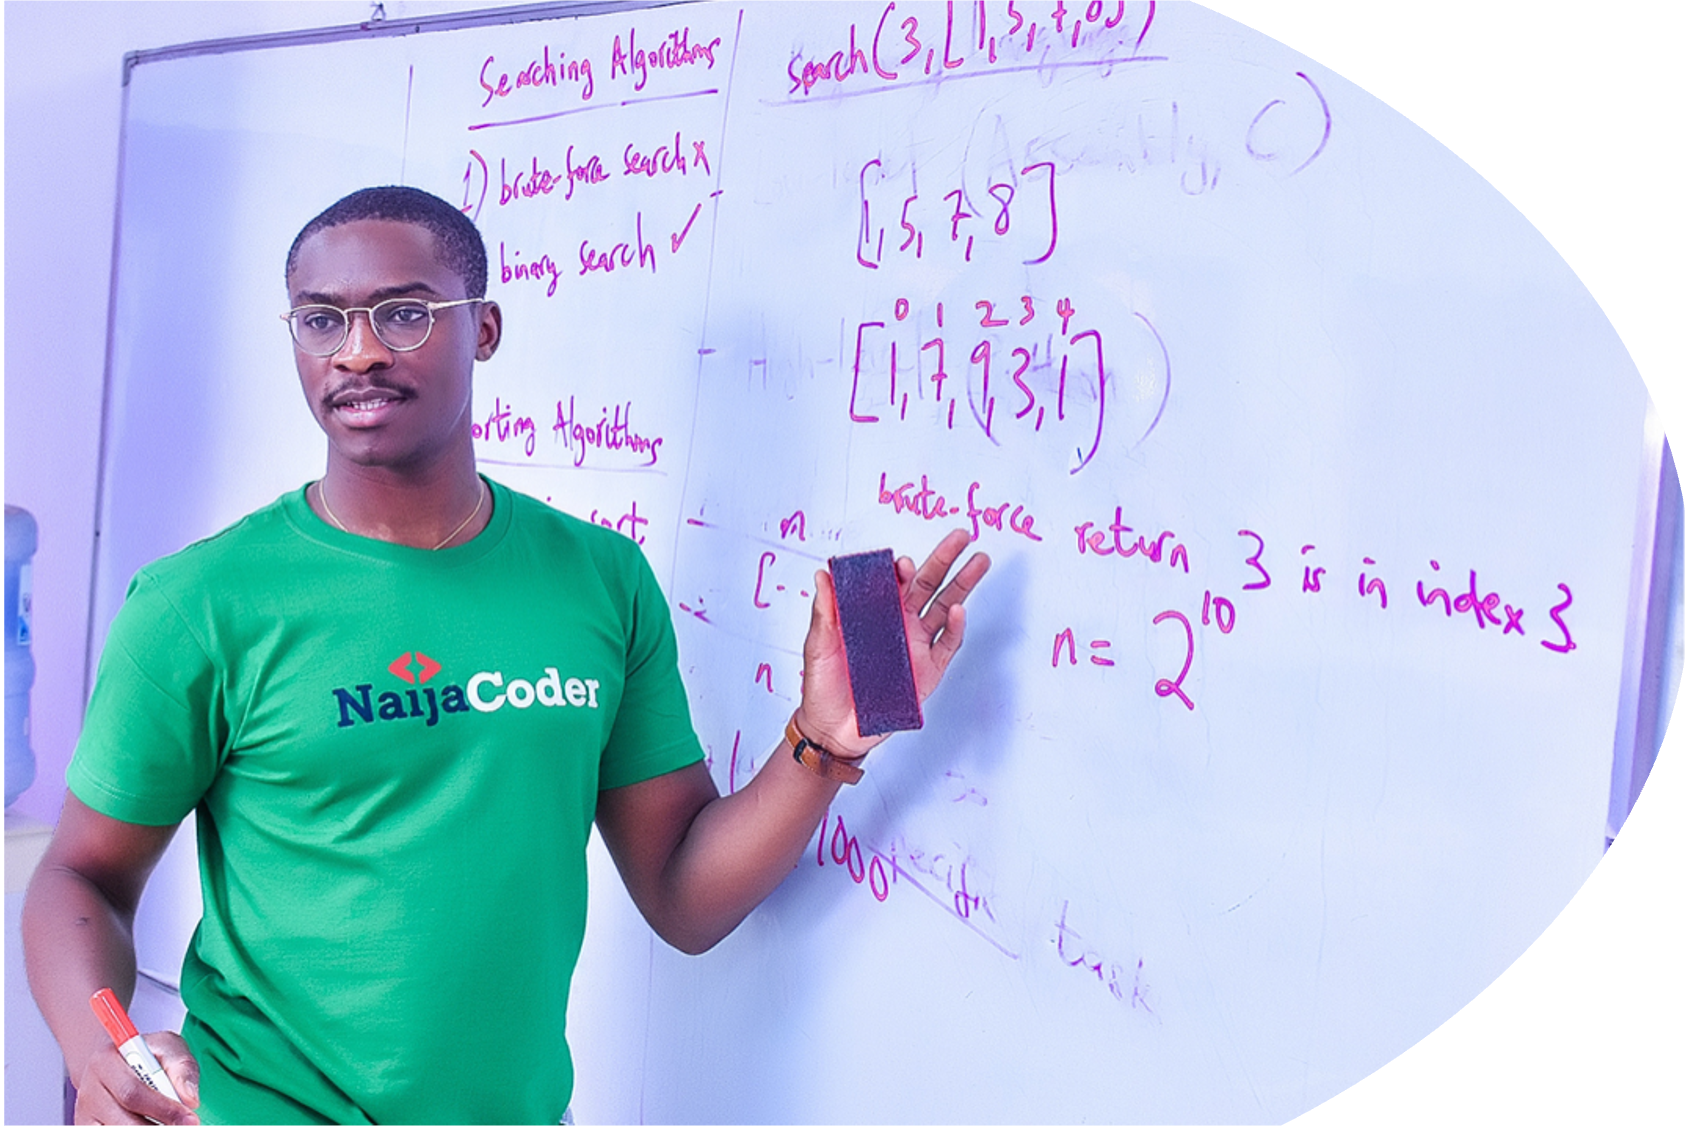 Searching Algorithms
1) brute-force search x
binary search ✓
orting Algorithms
sort
search(3, [1, 5, 7, 8])
(Assembly, C)
[1, 5, 7, 8]
0 1 2 3 4
[1, 7, 9, 3, 1]
brute-force return 3 is in index 3
n
[- -
n = 2^10
n
1000
task
NaijaCoder